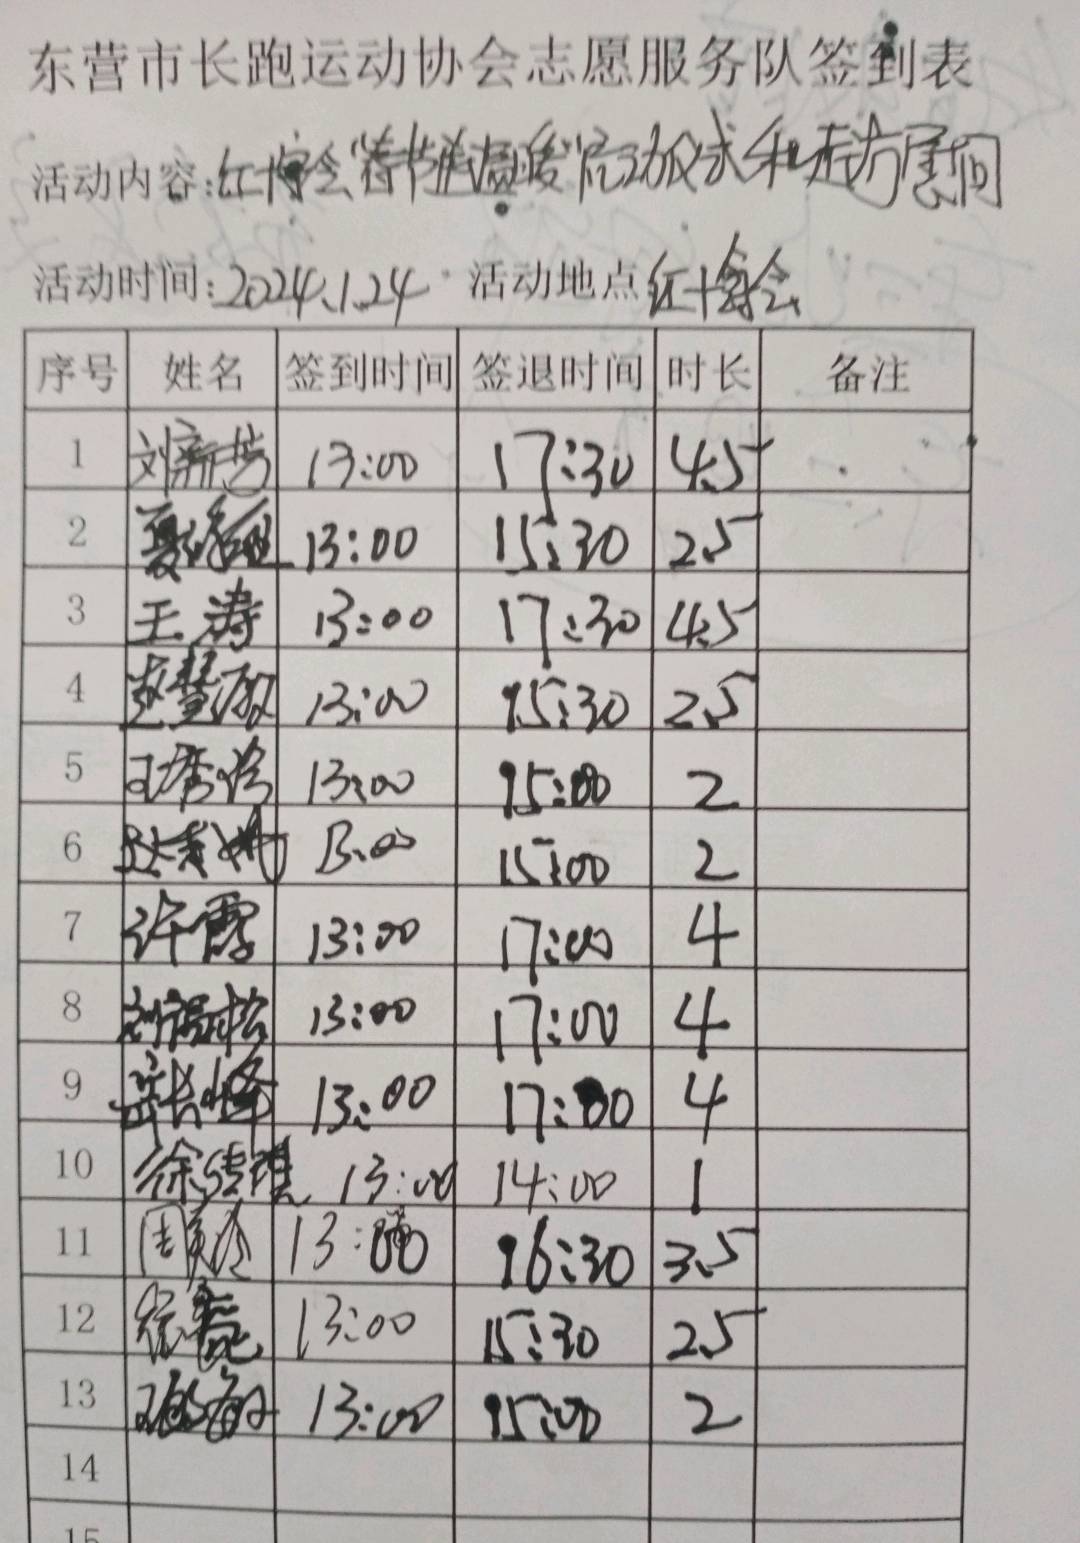 东营市长跑运动协会志愿服务队签到表
活动内容:红十字会"春节送温暖"启动仪式和走访慰问
活动时间:2024.1.24 活动地点 红十字会
序号 姓名 签到时间 签退时间 时长 备注
1 刘新芳 13:00 17:30 4.5
2 13:00 15:30 2.5
3 王涛 13:00 17:30 4.5
4 赵慧敏 13:00 15:30 2.5
5 王秀玲 13:00 15:00 2
6 13:00 15:00 2
7 许霞 13:00 17:00 4
8 刘福松 13:00 17:00 4
9 岳长峰 13:00 17:00 4
10 徐 13:00 14:00 1
11 周 13:00 16:30 3.5
12 13:00 15:30 2.5
13 13:00 15:00 2
14
15